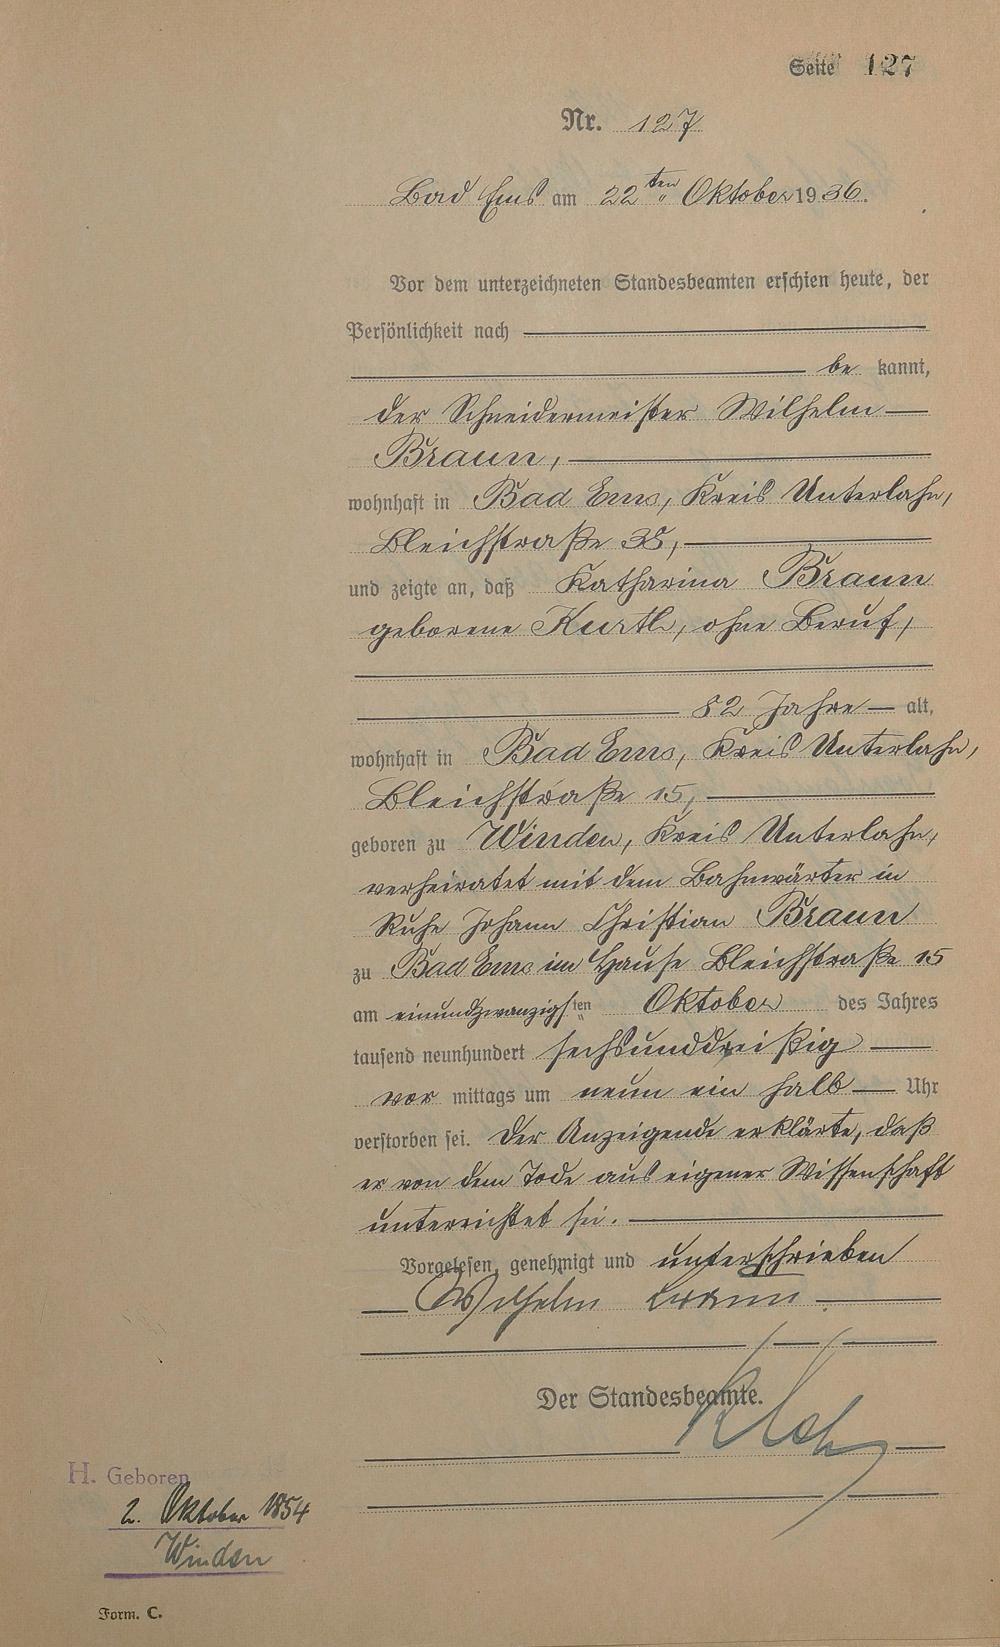 Seite 127
Nr. 127
Bad Ems am 22ten Oktober 1936.
Vor dem unterzeichneten Standesbeamten erschien heute, der
Persönlichkeit nach
be kannt,
der Schneidermeister Wilhelm
Braun,
wohnhaft in Bad Ems, Kreis Unterlahn,
Bleichstraße 38,
und zeigte an, daß Katharina Braun
geborene Kurth, ohne Beruf,
82 Jahre alt,
wohnhaft in Bad Ems, Kreis Unterlahn,
Bleichstraße 15,
geboren zu Winden, Kreis Unterlahn,
verheiratet mit dem Bahnwärter in
Ruhe Johann Christian Braun
zu Bad Ems im Hause Bleichstraße 15
am einundzwanzigsten Oktober des Jahres
tausend neunhundert sechsunddreißig
vor mittags um neun ein halb Uhr
verstorben sei. Der Anzeigende erklärte, daß
er von dem Tode aus eigener Wissenschaft
unterrichtet sei.
Vorgelesen, genehmigt und unterschrieben
Wilhelm Braun
Der Standesbeamte.
H. Geboren
2. Oktober 1854
Winden
Form. C.